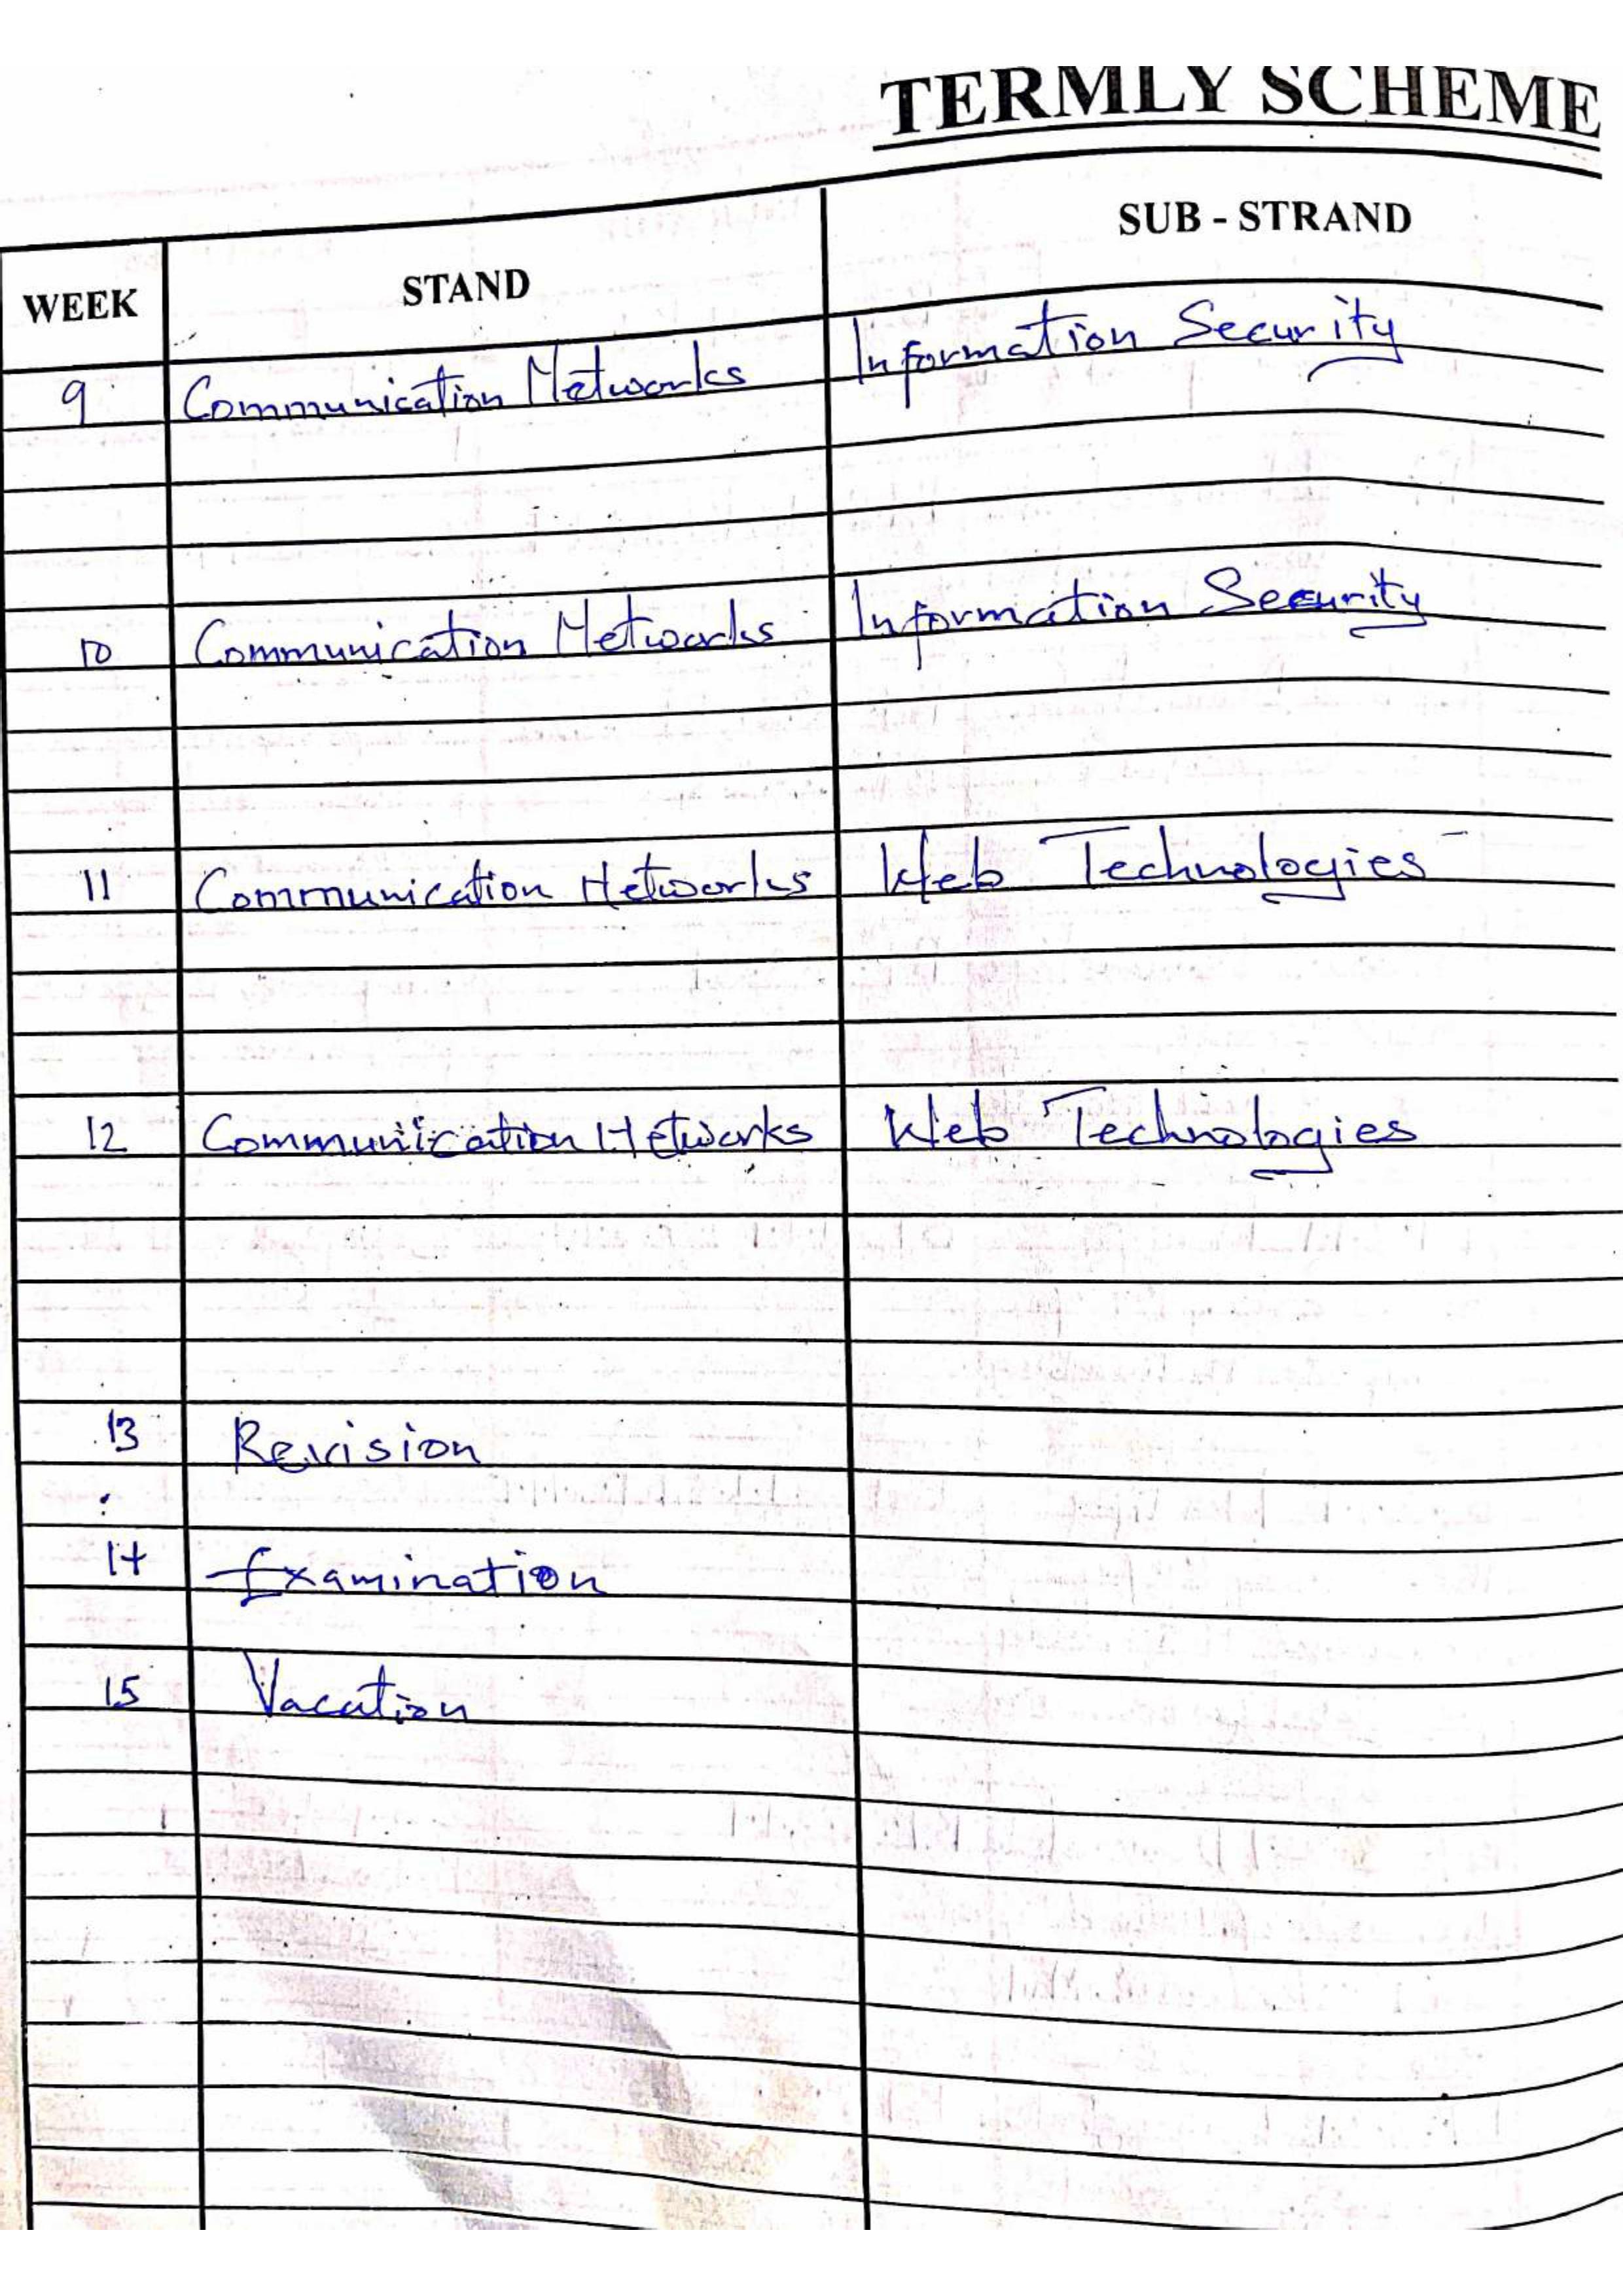 TERMLY SCHEME
WEEK STAND SUB - STRAND
9 Communication Networks Information Security
10 Communication Networks Information Security
11 Communication Networks Web Technologies
12 Communication Networks Web Technologies
13 Revision
14 Examination
15 Vacation